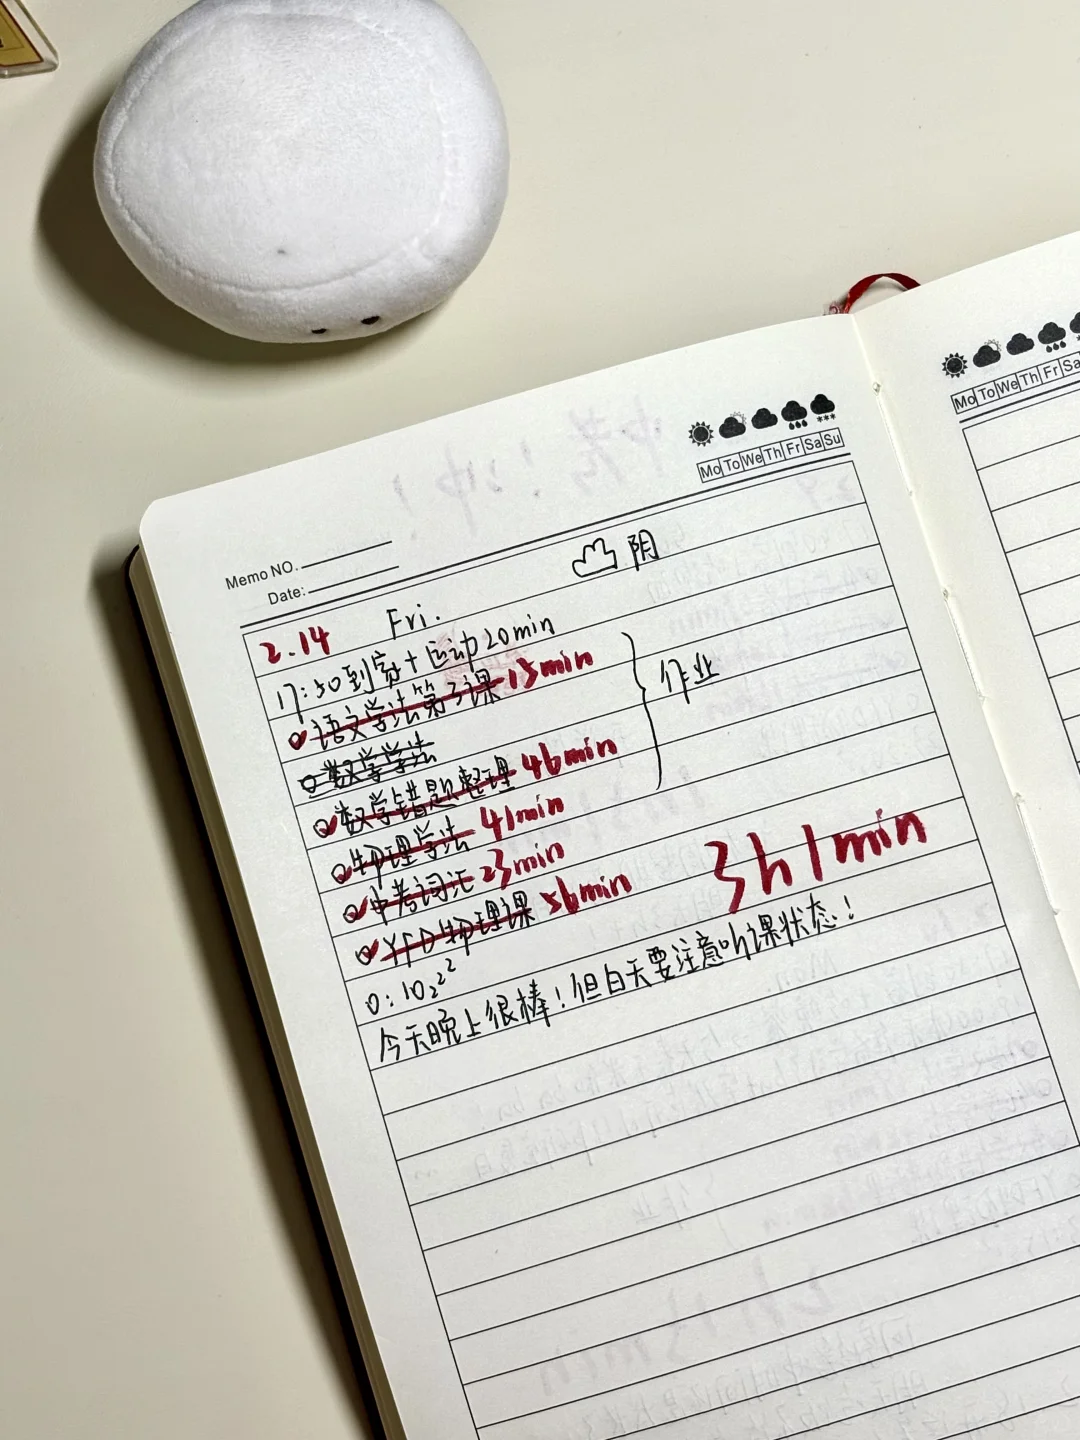 Memo NO.
Date:
Mo To We Th Fr Sa Su
Mo To We Th Fr Sa
阴
2.14 Fri.
17:50到家+运动20min
语文学法第3课 15min
数学学法
作业
数学错题整理 46min
物理学法 41min
中考词汇 23min
YFD物理课 56min
3h1min
0:10
今天晚上很棒!但白天要注意听课状态!